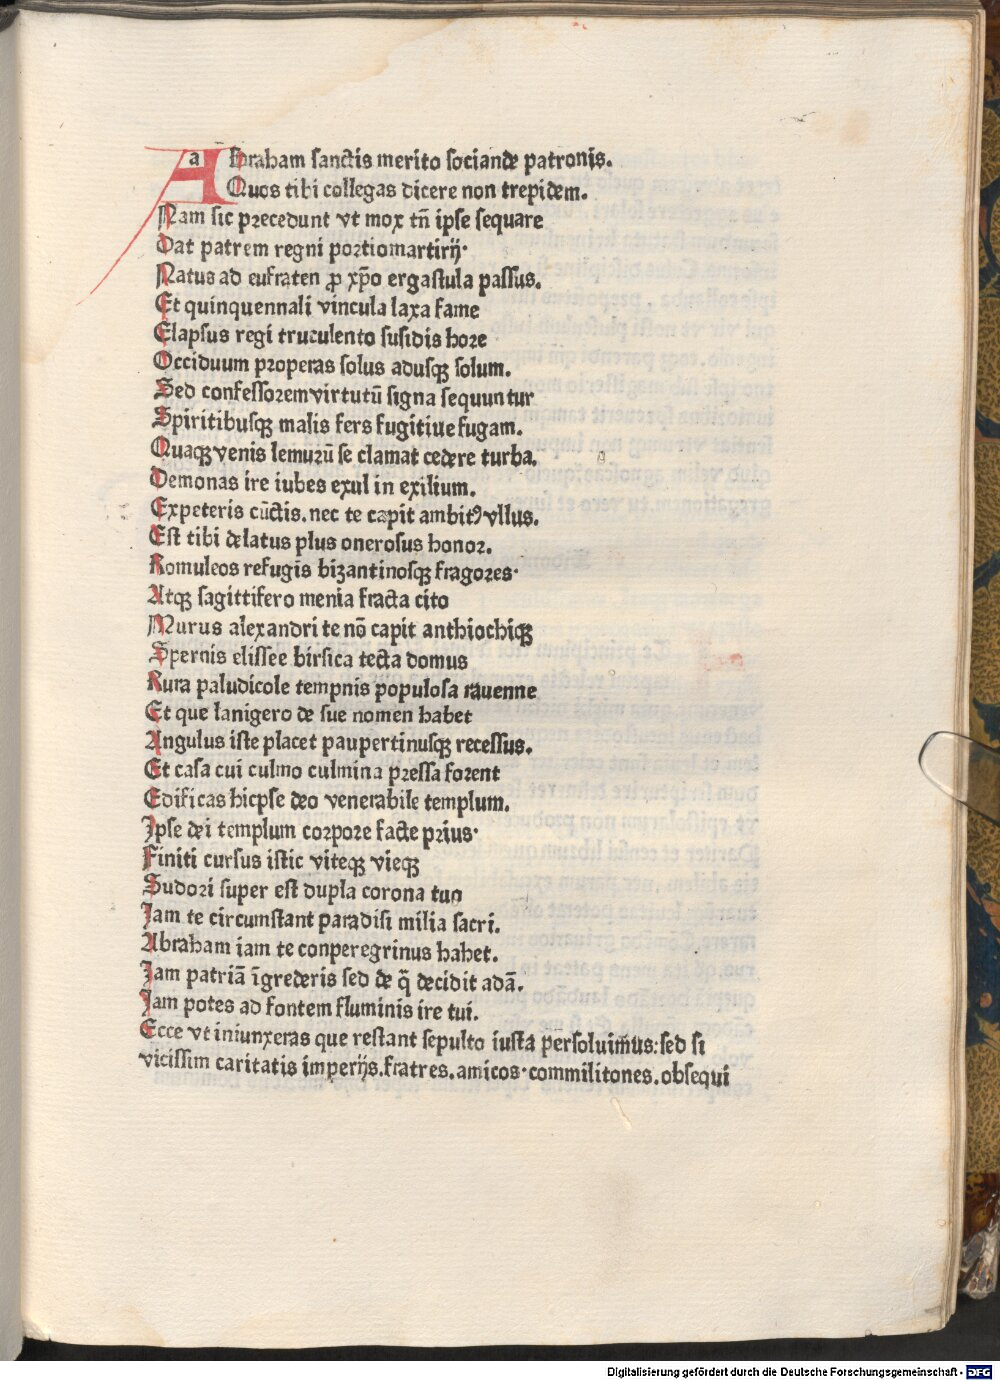 Abraham sanctis merito sociande patronis.
Quos tibi collegas dicere non trepidem.
Nam sic precedunt vt mox tñ ipse sequare
Dat patrem regni portiomartirij·
Natus ad eufraten ꝓ xp̄o ergastula passus.
Et quinquennali vincula laxa fame
Elapsus regi truculento susidis hore
Occiduum properas solus adusqꝫ solum.
Sed confessoremvirtutū signa sequuntur
Spiritibusqꝫ malis fers fugitiue fugam.
Quaqꝫ venis lemurū se clamat cedere turba.
Demonas ire iubes exul in exilium.
Expeteris cūctis.nec te capit ambitꝰ vllus.
Est tibi delatus plus onerosus honor.
Romuleos refugis bizantinosqꝫ fragores·
Atqꝫ sagittifero menia fracta cito
Murus alexandri te nō capit anthiochiqꝫ
Spernis elissee birsica tecta domus
Rura paludicole tempnis populosa rauenne
Et que lanigero de sue nomen habet
Angulus iste placet paupertinusqꝫ recessus.
Et casa cui culmo culmina pressa forent
Edificas hicpse deo venerabile templum.
Ipse dei templum corpore facte prius·
Finiti cursus istic viteqꝫ vieqꝫ
Sudori super est dupla corona tuo
Jam te circumstant paradisi milia sacri.
Abraham iam te conperegrinus habet.
Jam patriā īgrederis sed de q̄ decidit adā.
Jam potes ad fontem fluminis ire tui.
Ecce vt iniunxeras que restant sepulto iusta persoluimus:sed si
vicissim caritatis imperijs.fratres.amicos·commilitones.obsequi
Digitalisierung gefördert durch die Deutsche Forschungsgemeinschaft - DFG